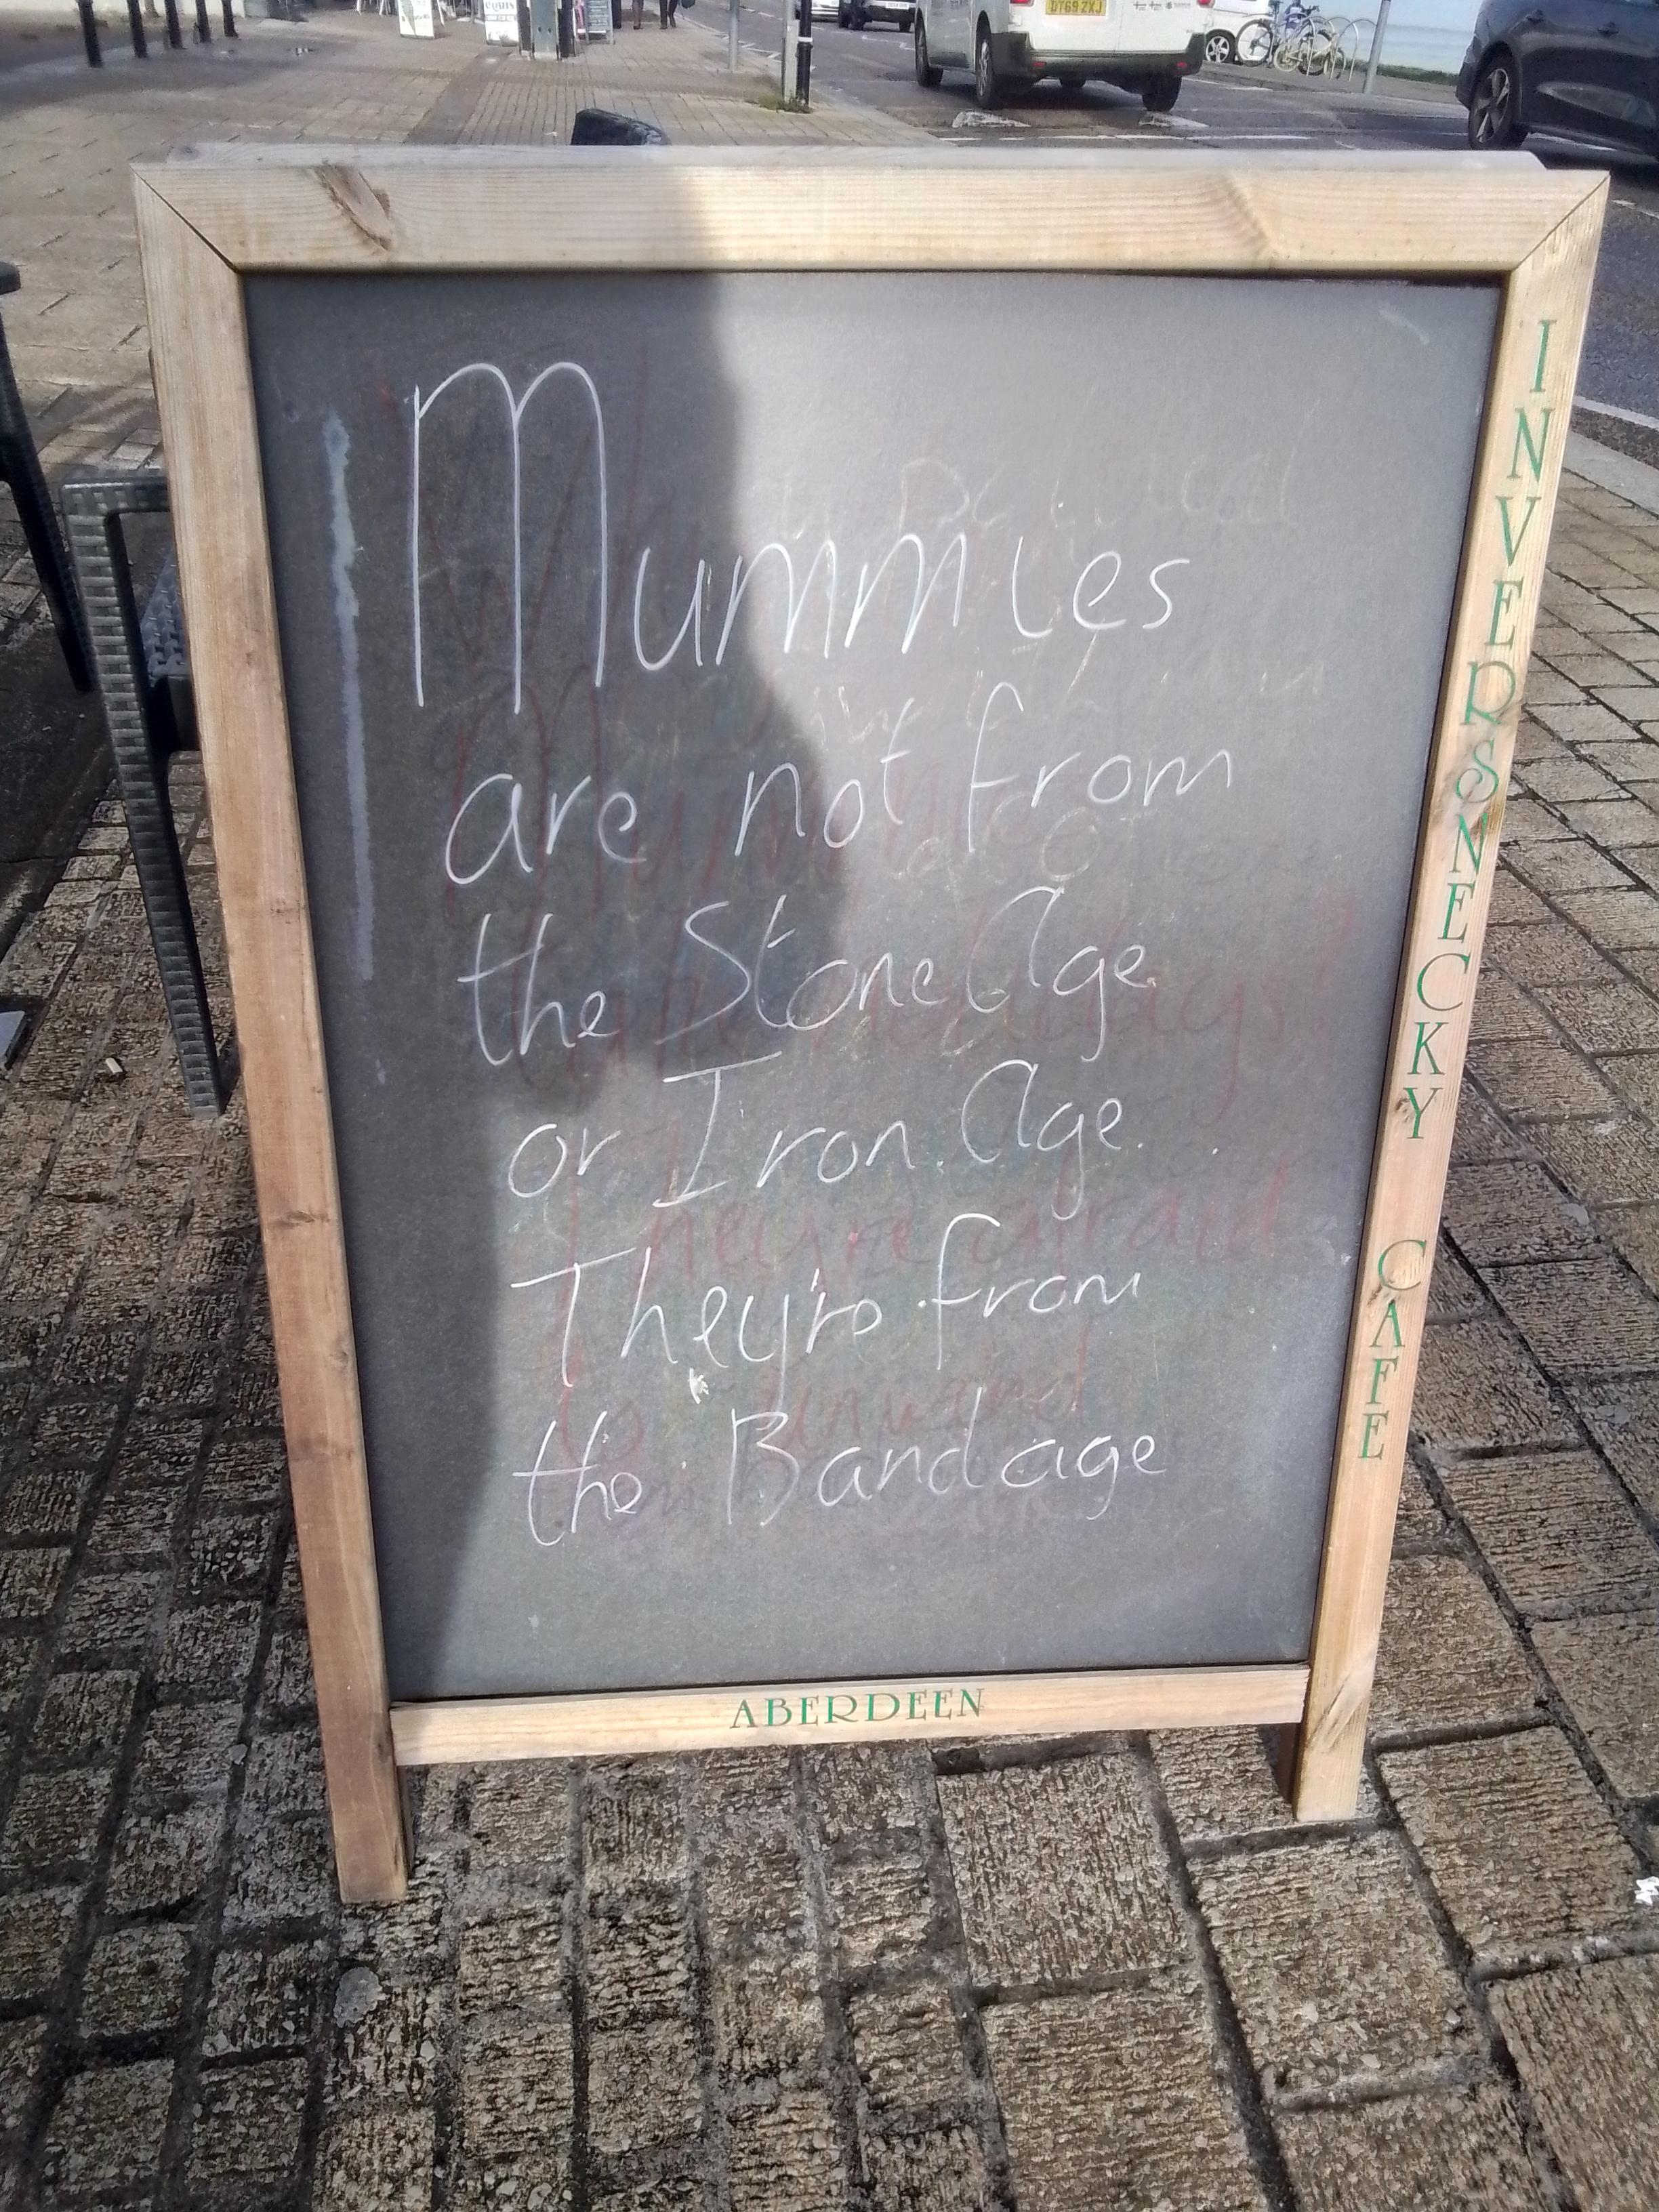 DT69 ZXJ
Mummies
are not from
the Stone Age
or Iron Age.
They're from
the Bandage
INVERSNECKY CAFE
ABERDEEN